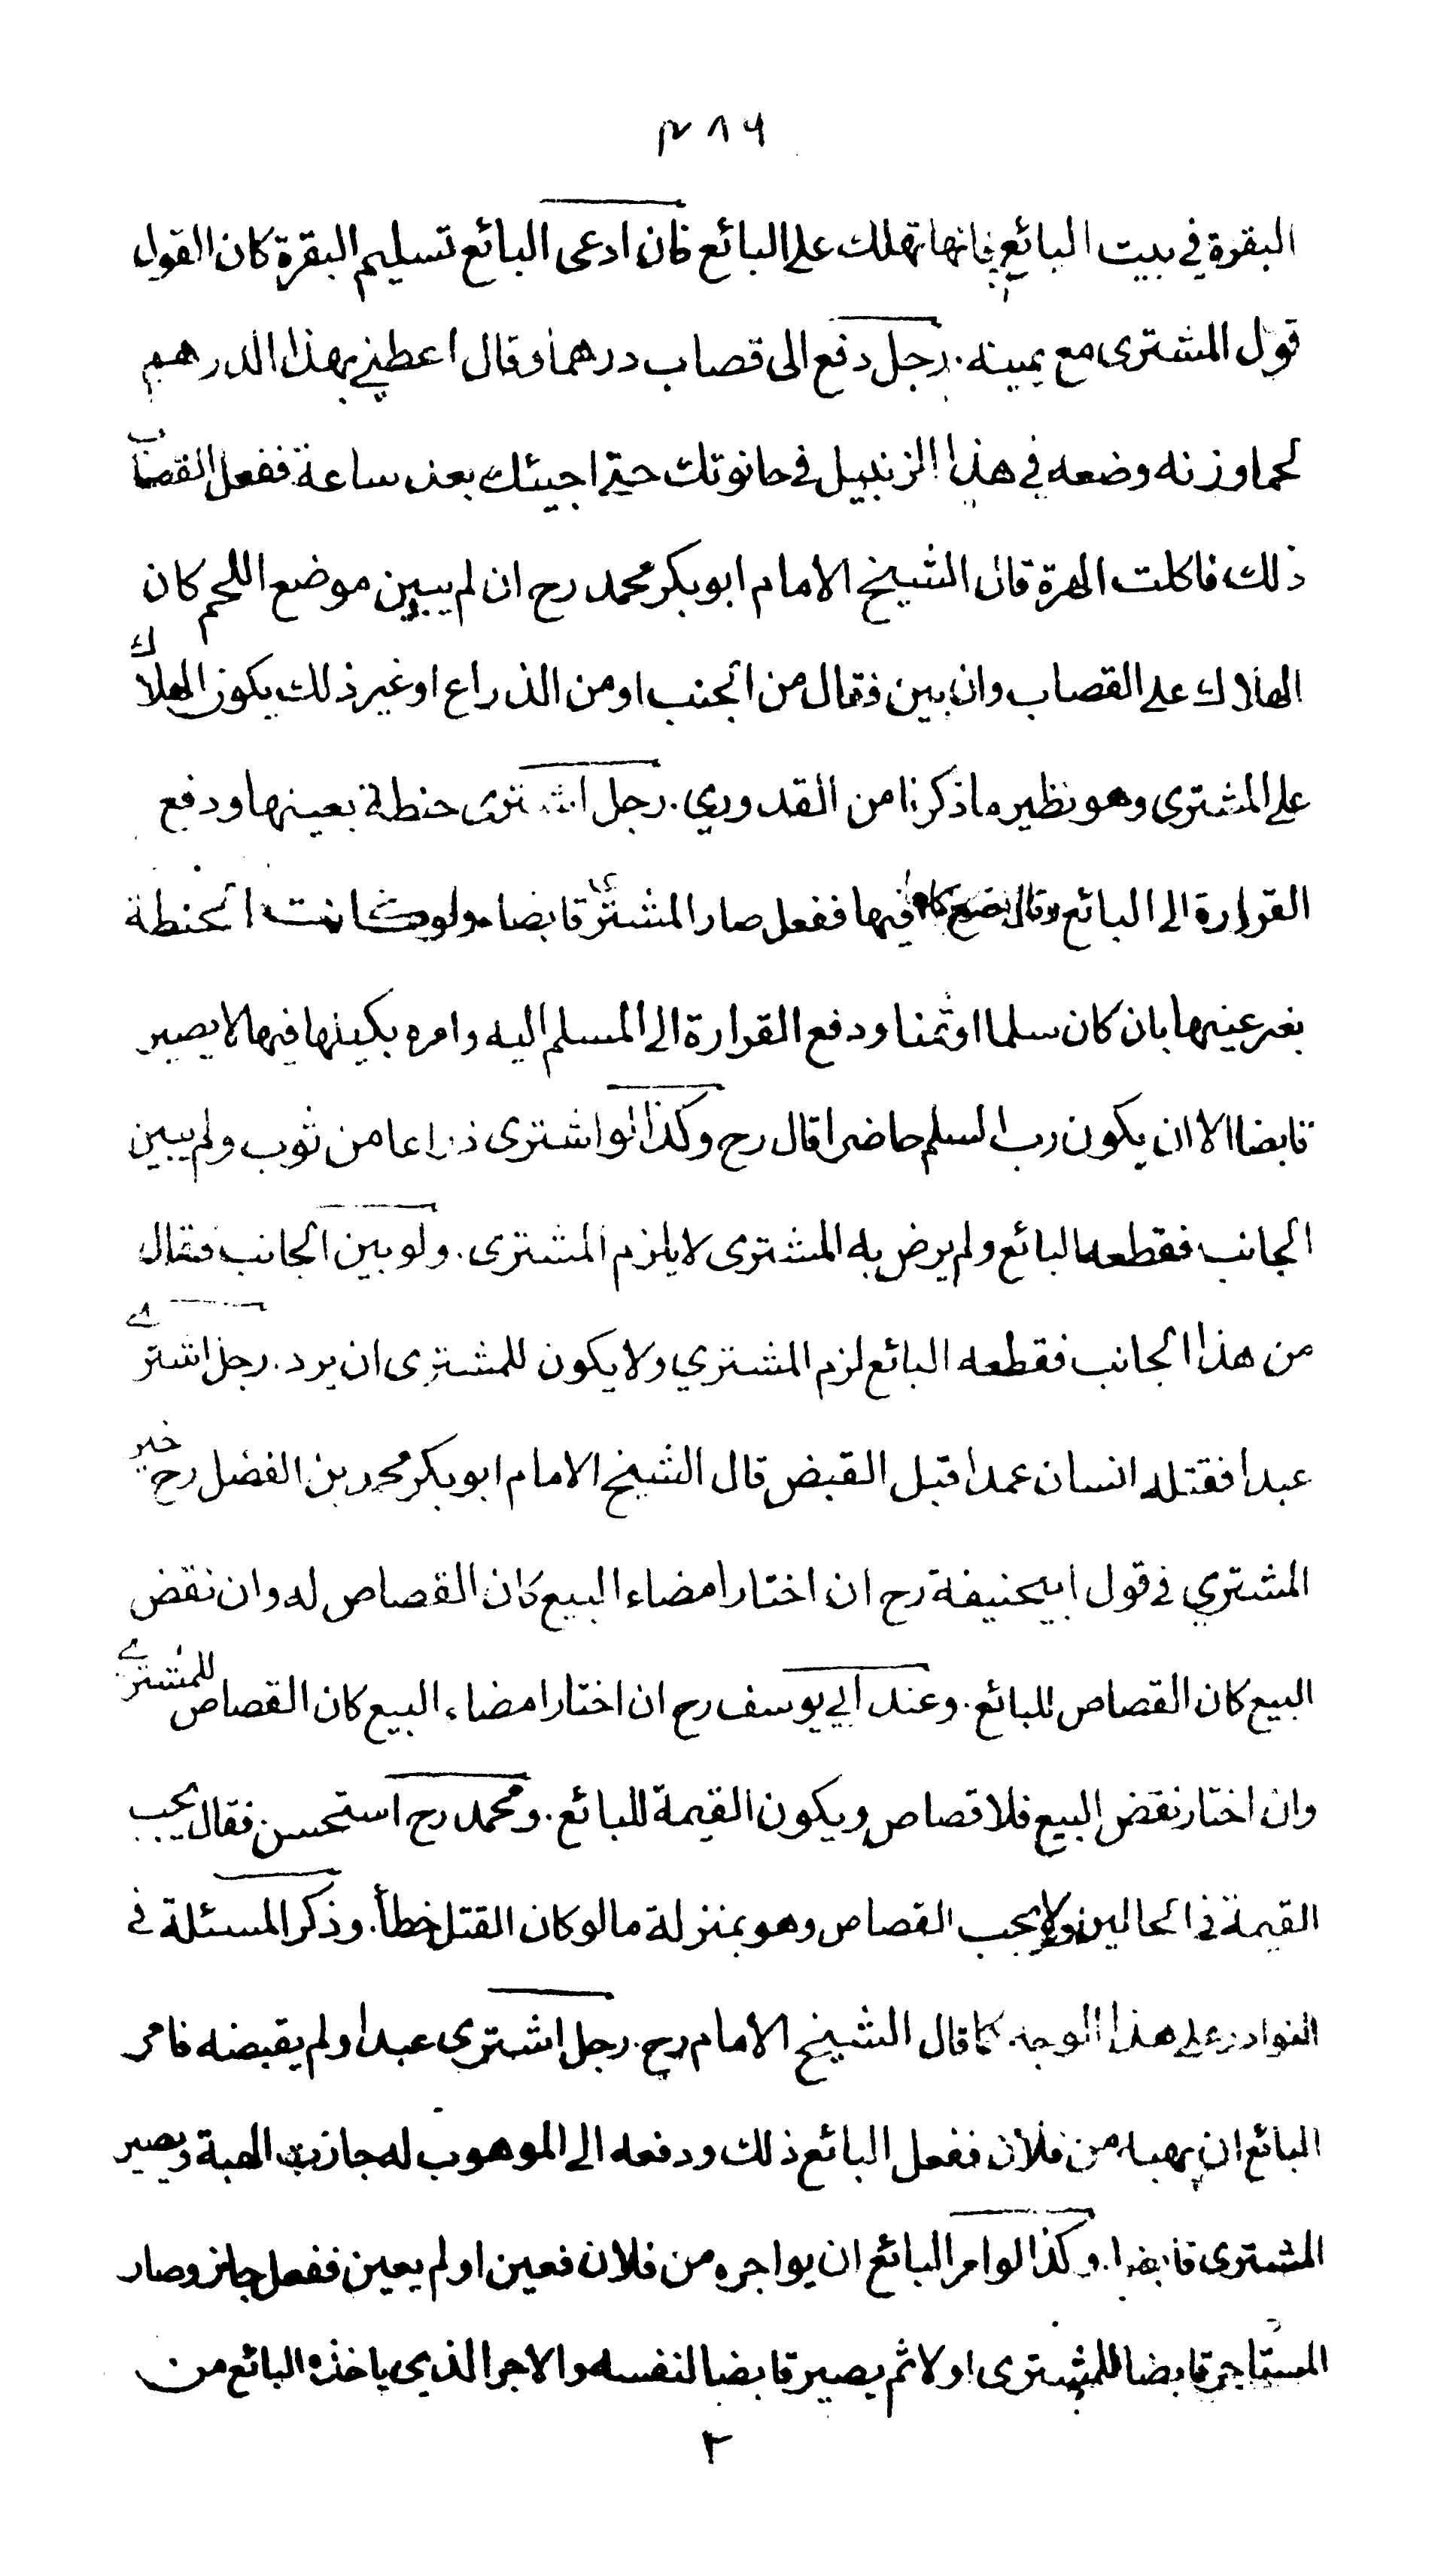 ٣٨٦
البقرة في بيت البائع فانها تهلك على البائع فان ادعى البائع تسليم البقرة كان القول
قول المشترى مع يمينه . رجل دفع الى قصاب درهما وقال اعطني بهذا الدرهم
لحما وزنه وضعه في هذا الزنبيل في حانوتك حتى اجيئك بعد ساعة ففعل القصاب
ذلك فاكلت الهرة قال الشيخ الامام ابو بكر محمد رح ان لم يبين موضع اللحم كان
الهلاك على القصاب وان بين فقال من الجنب او من الذراع او غير ذلك يكون الهلاك
على المشترى وهو نظير ما ذكرنا من القدوري . رجل اشترى حنطة بعينها ودفع
القرارة الى البائع وقال ضع كلها فيها ففعل صار المشترى قابضا ولو كانت الحنطة
بغير عينها بان كان سلما او ثمنا ودفع القرارة الى المسلم اليه وامره بكيلها فيها لا يصير
قابضا الا ان يكون رب السلم حاضرا قال رح وكذا لو اشترى ذراعا من ثوب ولم يبين
الجانب فقطعه البائع ولم يرض به المشترى لا يلزم المشترى . ولو بين الجانب فقال
من هذا الجانب فقطعه البائع لزم المشتري ولا يكون للمشترى ان يرد . رجل اشترے
عبدا فقتله انسان عمدا قبل القبض قال الشيخ الامام ابو بكر محمد بن الفضل رح خير
المشتري في قول ابيحنيفة رح ان اختار امضاء البيع كان القصاص له وان نقض
البيع كان القصاص للبائع . وعند ابي يوسف رح ان اختار امضاء البيع كان القصاص للمشترے
وان اختار نقض البيع فلا قصاص ويكون القيمة للبائع . ومحمد رح استحسن فقال يجب
القيمة في الحالين ولا يجب القصاص وهو بمنزلة ما لو كان القتل خطأ . وذكر المسئلة في
النوادر على هذا الوجه كما قال الشيخ الامام رح . رجل اشترى عبدا ولم يقبضه فامر
البائع ان يهبه من فلان ففعل البائع ذلك ودفعه الى الموهوب له جازت الهبة ويصير
المشترى قابضا . وكذا لو امر البائع ان يواجره من فلان فعين او لم يعين ففعل جاز وصار
المستاجر قابضا للمشترى اولا ثم يصير قابضا لنفسه والاجر الذي ياخذه البائع من
٢